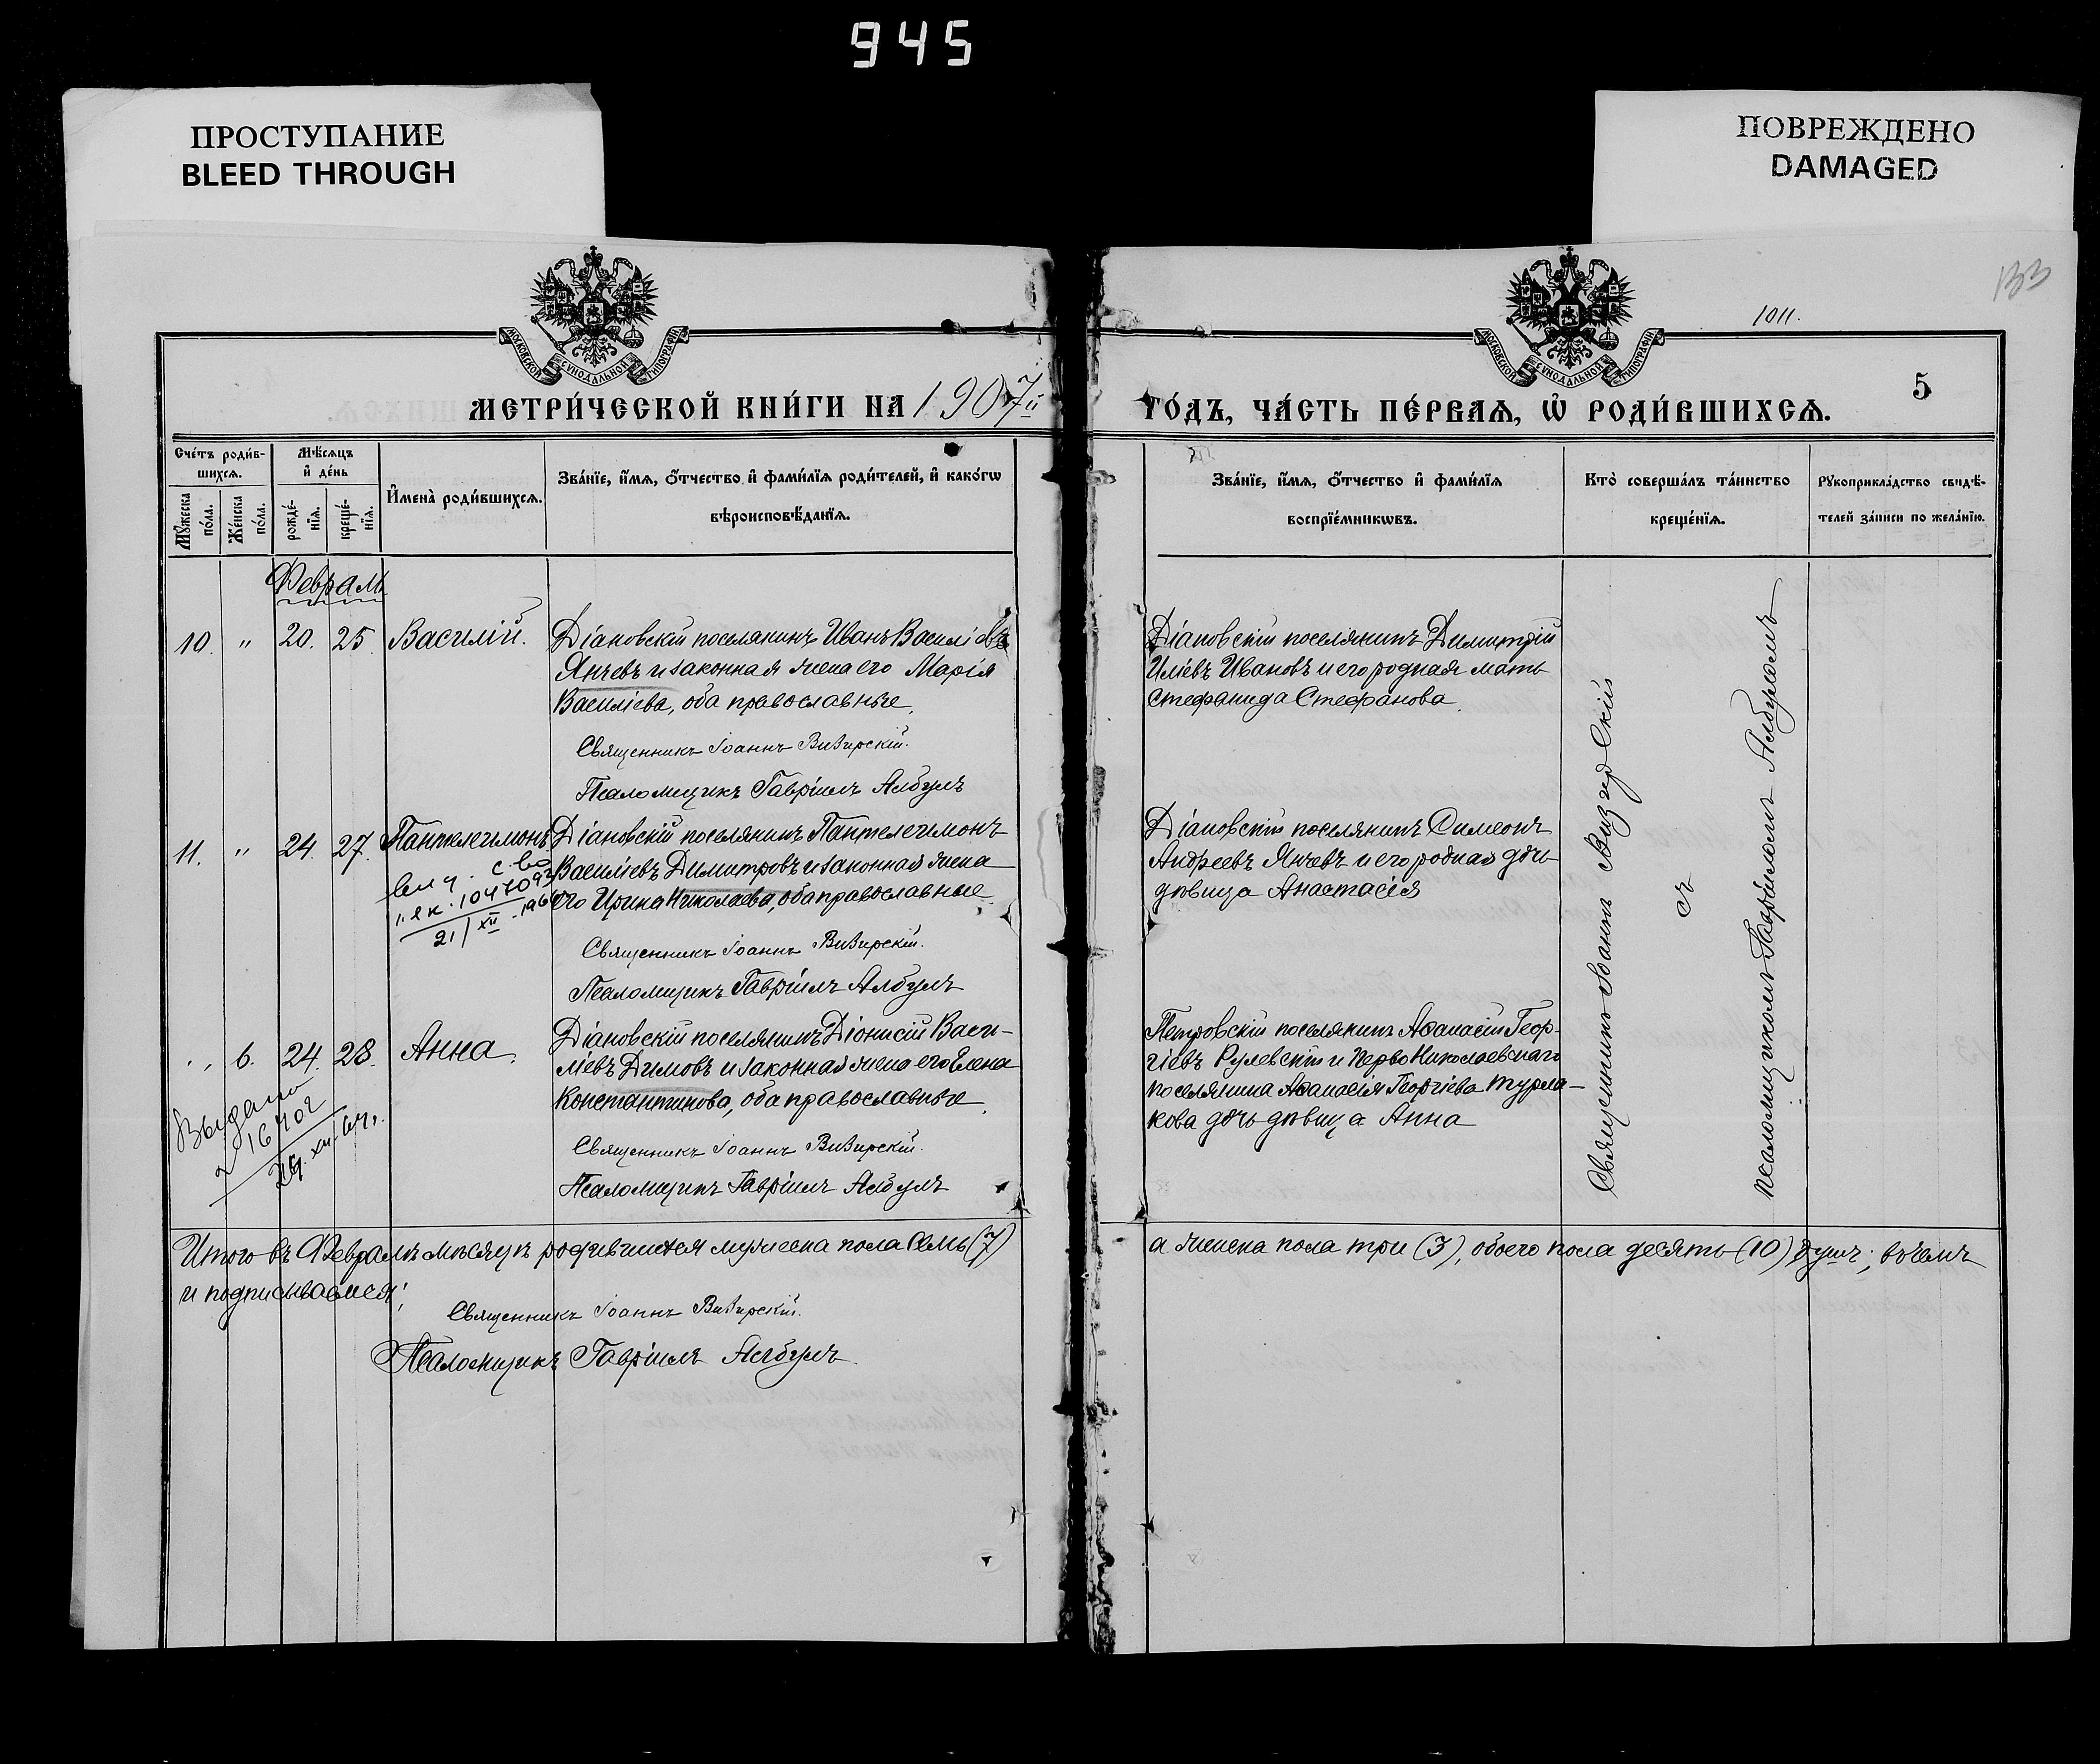 945
ПРОСТУПАНИЕ
BLEED THROUGH
ПОВРЕЖДЕНО
DAMAGED
133
1011.
МОСКОВСКОЙ СѴНОДАЛЬНОЙ ТИПОГРАФІИ
МОСКОВСКОЙ СѴНОДАЛЬНОЙ ТИПОГРАФІИ
5
МЕТРИ́ЧЕСКОЙ КНИ́ГИ НА 1907й
ГО́ДЪ, ЧА́СТЬ ПЕ́РВАѦ, Ѡ РОДИ́ВШИХСѦ.
Сче́тъ роди́вшихсѧ.
Мꙋ́жеска по́ла.
Же́нска по́ла.
Мѣ́сѧцъ и҆ де́нь
рожде́нїѧ.
креще́нїѧ.
И҆мена̀ роди́вшихсѧ.
Зва́нїе, и҆́мѧ, ѻ҆́тчество и҆ фамі́лїѧ роди́телей, и҆ како́гѡ
вѣроисповѣ́данїѧ.
Зва́нїе, и҆́мѧ, ѻ҆́тчество и҆ фамі́лїѧ
воспрїе́мникѡвъ.
Кто̀ соверша́лъ та́инство
креще́нїѧ.
Рꙋкоприкла́дство свидѣ́-
телей за́писи по жела́нїю.
Февраль
10. " 20. 25. Василій.
Діановскій поселянинъ Иванъ Василіевъ
Янчевъ и законная жена его Марія
Василіева, оба православные.
Священникъ Іоаннъ Визирскій.
Псаломщикъ Гавріилъ Албулъ
Діановскій поселянинъ Димитрій
Иліевъ Ивановъ и его родная мать
Стефанида Стефанова.
11. " 24. 27. Пантелеимонъ
Діановскій поселянинъ Пантелеимонъ
Василіевъ Димитровъ и законная жена
его Ирина Николаева, оба православные.
Священникъ Іоаннъ Визирскій.
Псаломщикъ Гавріилъ Албулъ
21/XII
Діановскій поселянинъ Симеонъ
Андреевъ Янчевъ и его родная дочь
дѣвица Анастасія
" 6. 24. 28. Анна.
Діановскій поселянинъ Діонисій Васи-
ліевъ Димовъ и законная жена его Елена
Константинова, оба православные.
Священникъ Іоаннъ Визирскій.
Псаломщикъ Гавріилъ Албулъ
Выдано
Петровскій поселянинъ Аѳанасій Геор-
гіевъ Рулевскій и Перво Николаевскаго
поселянина Аѳанасія Георгіева Турла-
кова дочь дѣвица Анна
Священникъ Іоаннъ Визирскій
съ
псаломщикомъ Гавріиломъ Албуломъ
Итого въ Февралѣ мѣсяцѣ родившихся мужеска пола семь (7)
а женска пола три (3), обоего пола десять (10) душъ; въ чемъ
и подписываемся:
Священникъ Іоаннъ Визирскій.
Псаломщикъ Гавріилъ Албулъ.